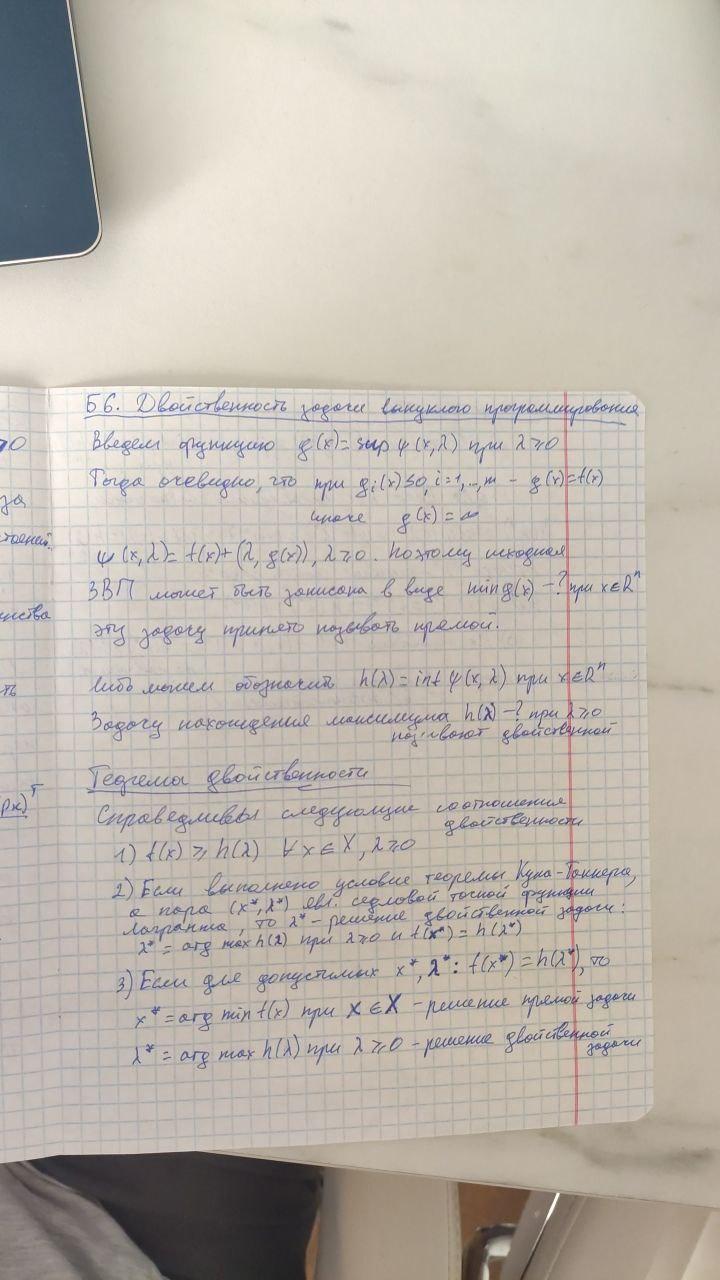 Б6. Двойственность задачи выпуклого программирования
Введем функцию g(x)= sup ψ(x,λ) при λ≥0
Тогда очевидно, что при gᵢ(x)≤0, i=1,..,m - g(x)=f(x)
иначе g(x)=∞
ψ(x,λ)= f(x)+(λ, g(x)), λ≥0. Поэтому исходная
ЗВП может быть записана в виде min g(x) -? при x∈Rⁿ
эту задачу принято называть прямой.
Либо можем обозначить h(λ)= inf ψ(x,λ) при x∈Rⁿ
Задачу нахождения максимума h(λ) -? при λ≥0
называют двойственной
Теоремы двойственности
Справедливы следующие соотношения
двойственности
1) f(x) ≥ h(λ) ∀ x∈X, λ≥0
2) Если выполнено условие теоремы Куна-Таккера,
а пара (x*,λ*) явл. седловой точкой функции
Лагранжа, то λ* - решение двойственной задачи:
λ* = arg max h(λ) при λ≥0 и f(x*) = h(λ*)
3) Если для допустимых x*, λ*: f(x*) = h(λ*), то
x* = arg min f(x) при x∈X - решение прямой задачи
λ* = arg max h(λ) при λ≥0 - решение двойственной
задачи
≥0
за
нства
ть
Px)ᵀ